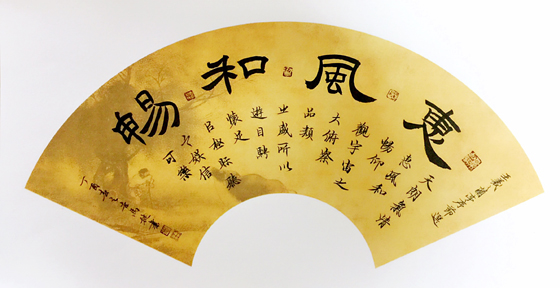 惠風和暢
王羲之蘭亭序節選
天朗氣清
惠風和
暢仰
觀宇宙之
大俯察
品類
之盛所以
遊目騁
懷足
以極視聽
之娛信
可樂
丁亥